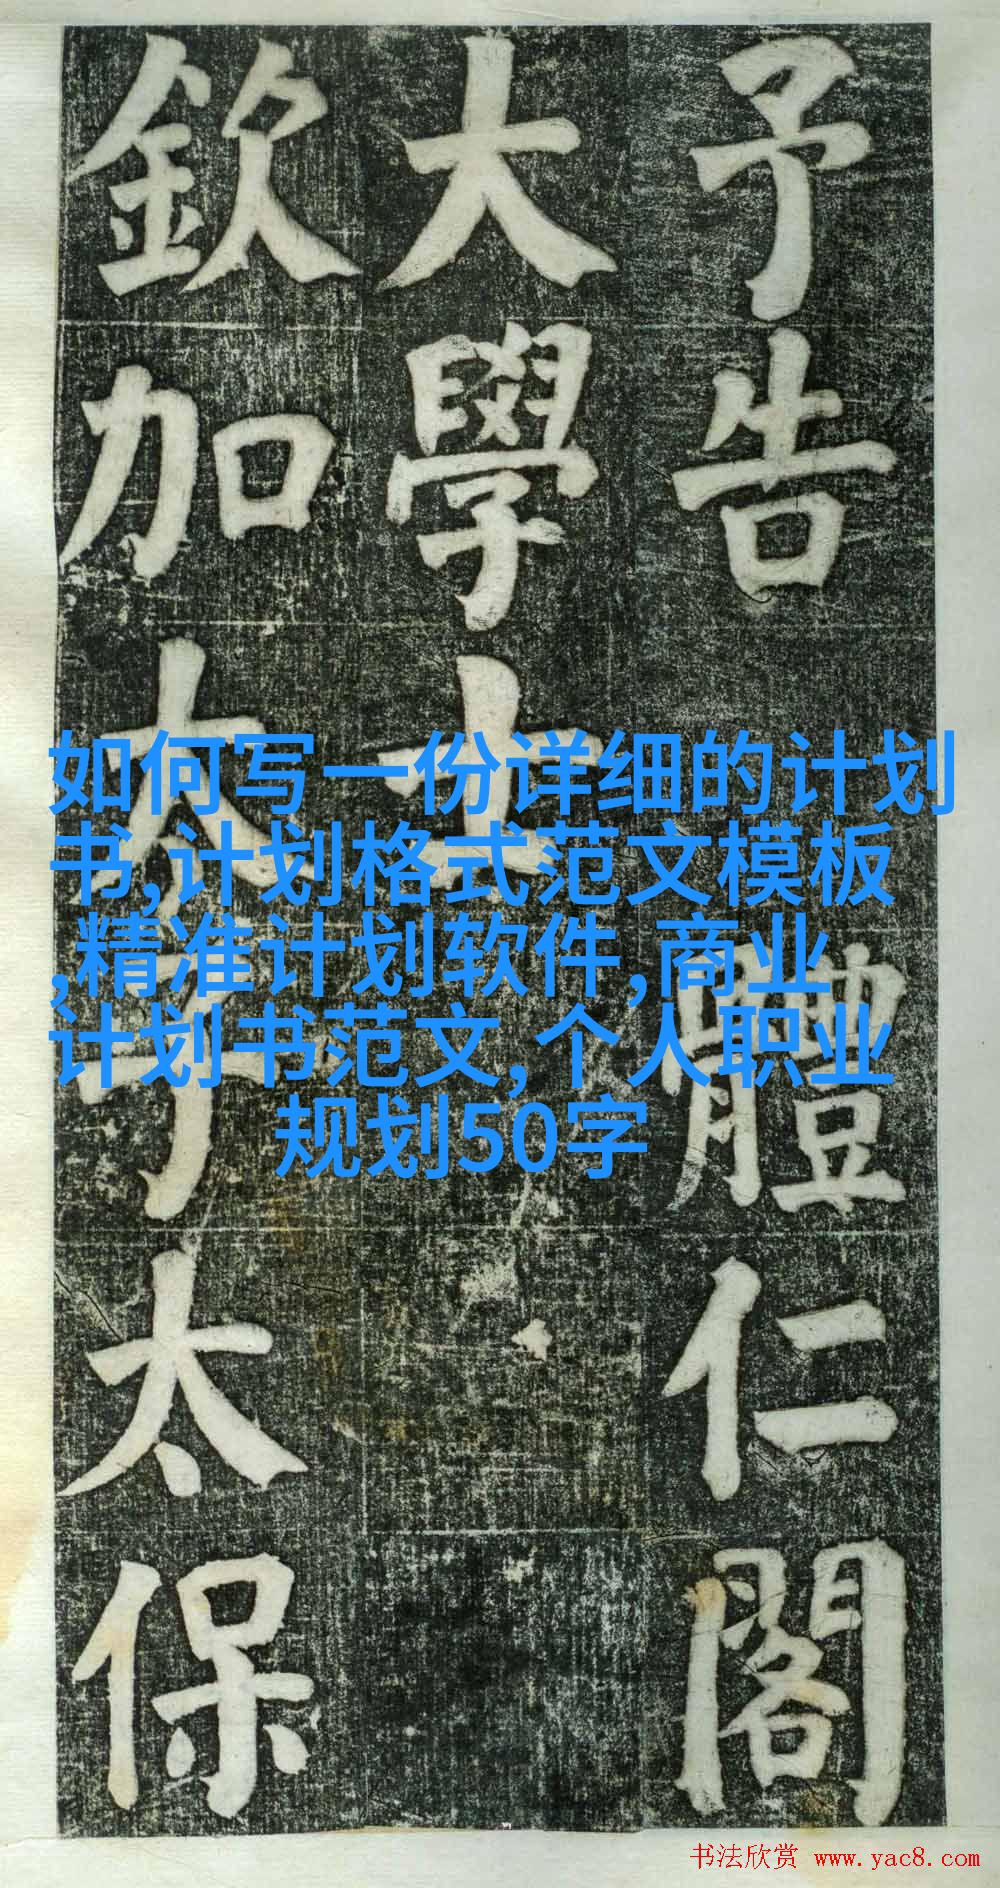 予告
體仁閣
大學士
欽加太子太保
如何写一份详细的计划
书,计划格式范文模板
,精准计划软件,商业
计划书范文,个人职业
规划50字
书法欣赏 www.yac8.com